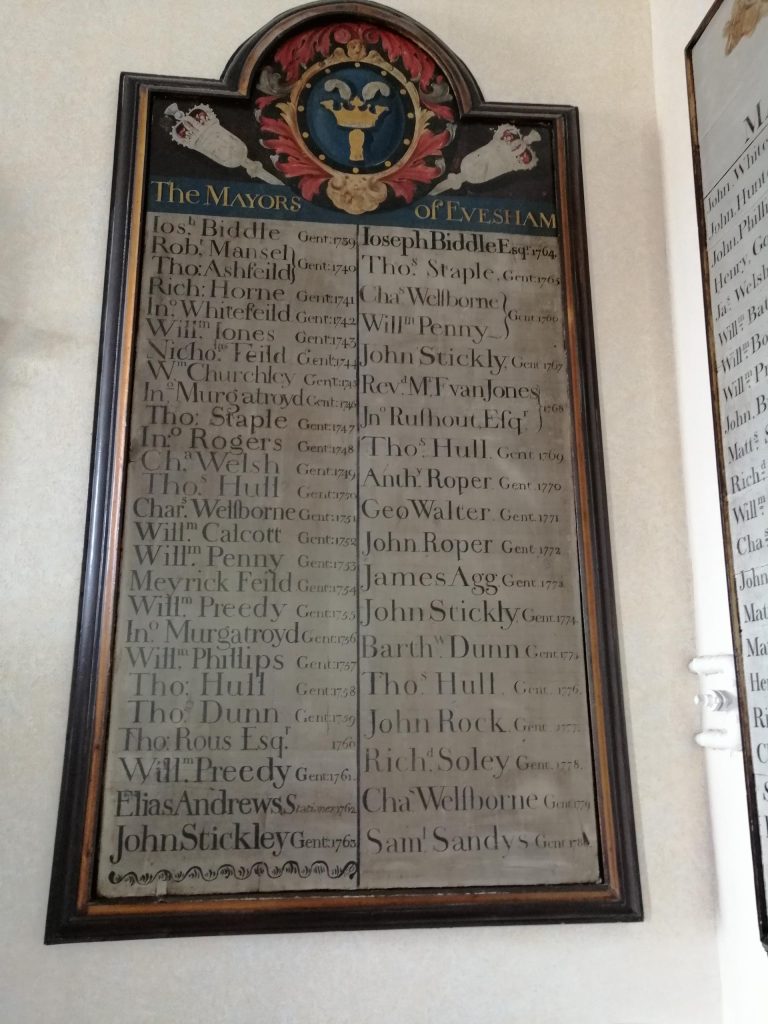 The Mayors of Evesham
Ios.h Biddle Gent: 1739
Rob.t Mansel
Tho: Ashfeild Gent: 1740
Rich: Horne Gent: 1741
In.o Whitefeild Gent: 1742
Will.m Jones Gent: 1743
Nicho.s Feild Gent: 1744
W.m Churchley Gent: 1745
In.o Murgatroyd Gent: 1746
Tho: Staple Gent: 1747
In.o Rogers Gent: 1748
Ch.a Welsh Gent: 1749
Tho.s Hull Gent: 1750
Char.s Welſborne Gent: 1751
Will.m Calcott Gent: 1752
Will.m Penny Gent: 1753
Meyrick Feild Gent: 1754
Will.m Preedy Gent: 1755
In.o Murgatroyd Gent: 1756
Will.m Phillips Gent: 1757
Tho: Hull Gent: 1758
Tho.s Dunn Gent: 1759
Tho: Rous Esq.r 1760
Will.m Preedy Gent: 1761.
Elias Andrews, Stationer 1762
John Stickley Gent: 1763
Joseph Biddle Esq.r 1764.
Tho.s Staple, Gent. 1765
Cha.s Welſborne
Will.m Penny Gent 1766
John Stickly, Gent 1767
Rev.d M.r Evan Jones
Jn.o Ruſhout, Eſq.r 1768
Tho.s Hull. Gent. 1769
Anth.y Roper. Gent. 1770
Geo Walter. Gent. 1771
John. Roper Gent 1772
James Agg Gent. 1773
John Stickly. Gent. 1774.
Barth.w Dunn Gent. 1775
Tho.s Hull. Gent. 1776.
John Rock. Gent 1777.
Rich.d Soley Gent. 1778.
Cha.s Welſborne Gent 1779
Sam.l Sandys Gent
John. White
John. Hunt
John. Philli
Henry. Ge
Ja.s Welsh
Will.m Bat
Will.m Bo
Will.m Pr
John. B
Matt.s S
Rich.d
Will.m
Cha.s
John
Mat
Ma
He
Ri
C